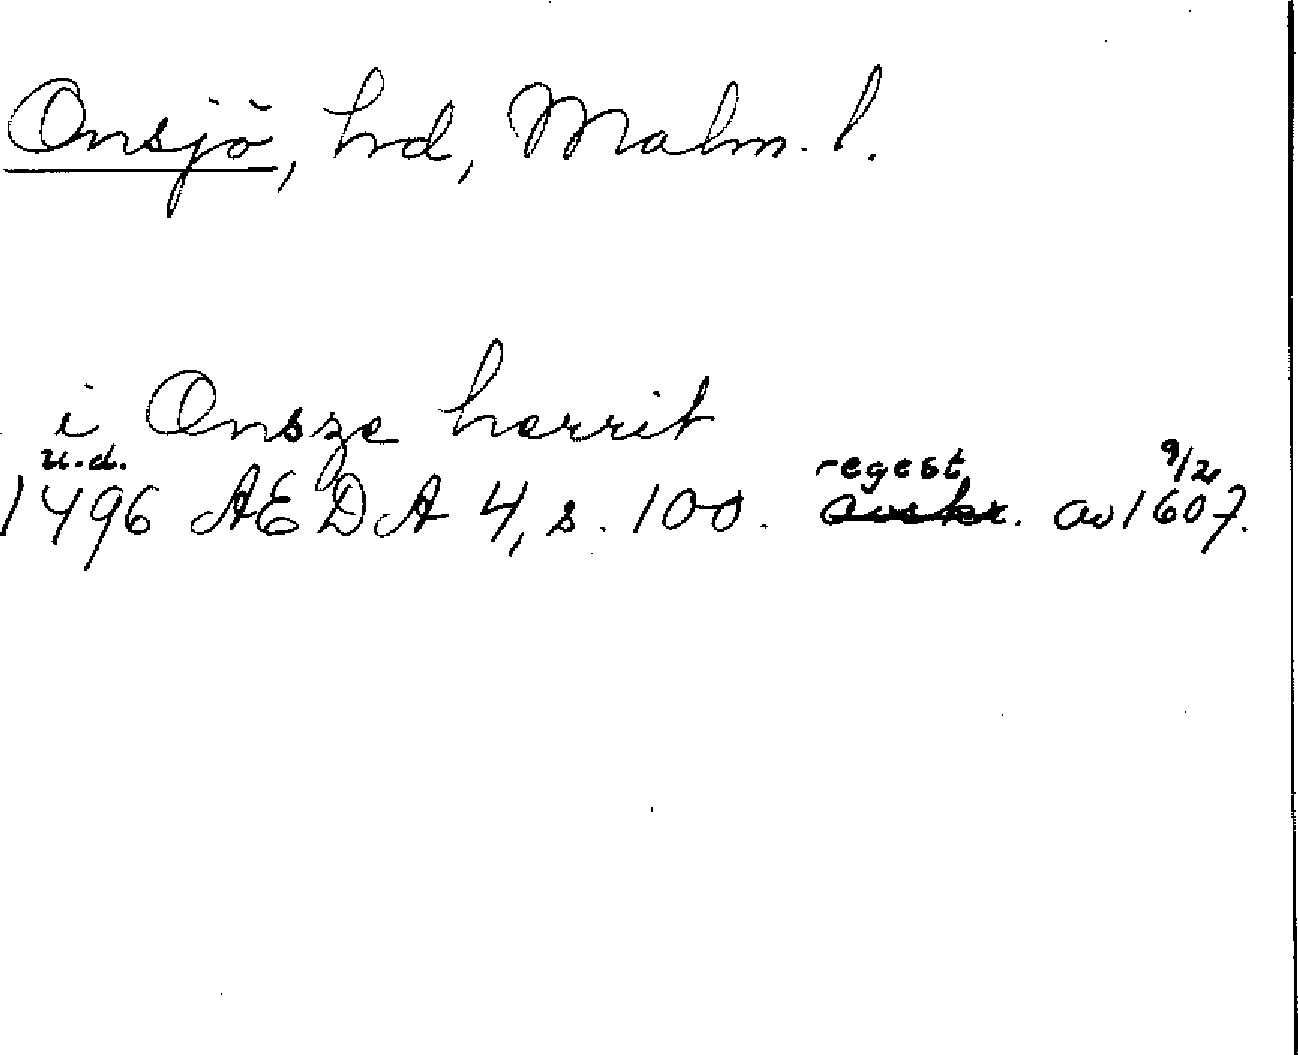 Onsjö, hd, Malm. l.
i Onsze herrit
u.d. regest 9/2
1496 AEDA 4, s. 100. avskr. av 1607.